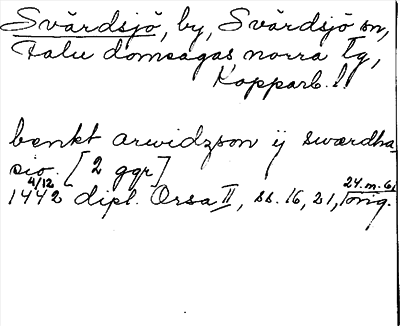 Svärdsjö, by, Svärdsjö sn,
Falu domsagas norra tg,
Kopparb. l.
benkt arwidzson ij swærdha
sio. [2 ggr]
4/12 24.m.61
1442 dipl. Orsa II, ss. 16, 21, orig.